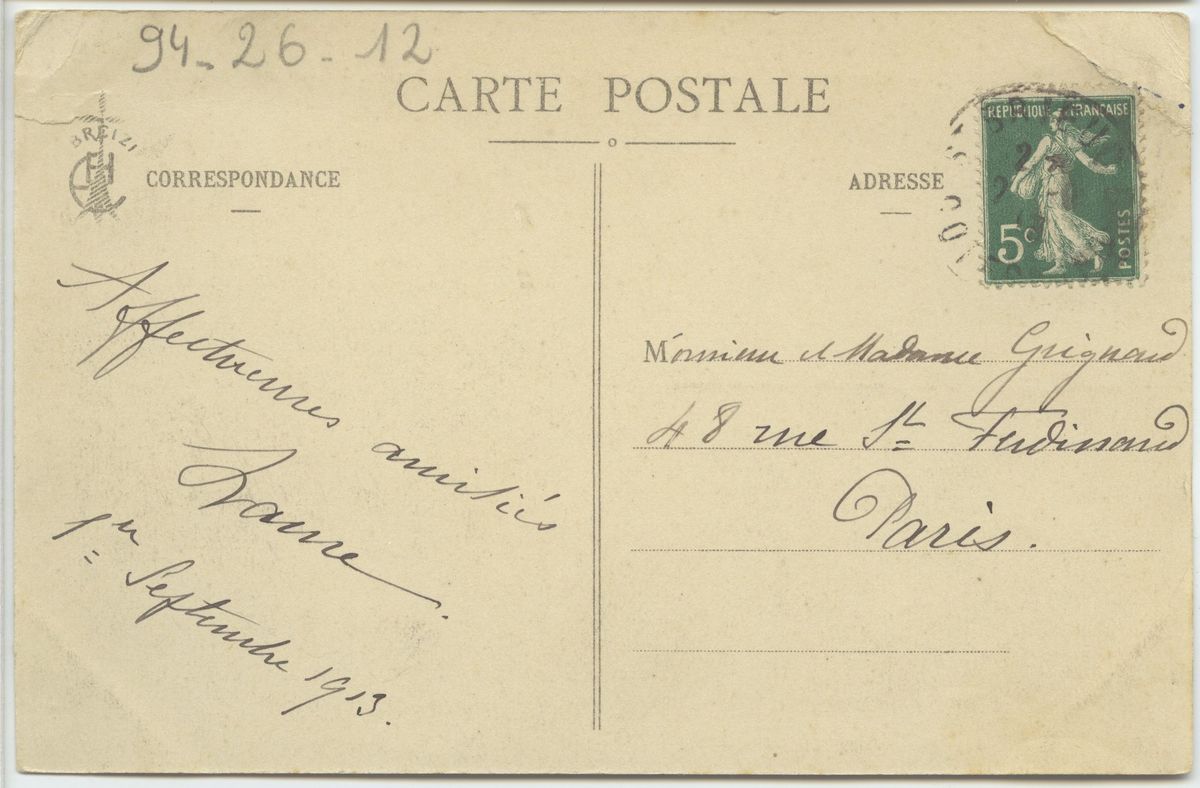 94-26-12
CARTE POSTALE
BREIZ
CORRESPONDANCE
ADRESSE
REPUBLIQUE FRANÇAISE
5c
POSTES
Affectueuses amitiés
1er Septembre 1913.
Monsieur et Madame Grignard
48 rue St Ferdinand
Paris.